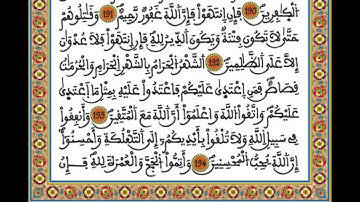 اَ۬لْكٰفِرِينَ 190 فَإِنِ اِ۪نتَهَوْاْ فَإِنَّ اَ۬للَّهَ غَفُورٌ رَّحِيمٌ 191 وَقَٰتِلُوهُمْ
حَتَّىٰ لَا تَكُونَ فِتْنَةٌ وَيَكُونَ اَ۬لدِّينُ لِلهِ فَإِنِ اِ۪نتَهَوْاْ فَلَا عُدْوَٰنَ
إِلَّا عَلَى اَ۬لظَّٰلِمِينَ 192 اَ۬لشَّهْرُ اُ۬لْحَرَامُ بِالشَّهْرِ اِ۬لْحَرَامِ وَالْحُرُمَٰتُ
قِصَاصٌ فَمَنِ اِ۪عْتَدَىٰ عَلَيْكُمْ فَاعْتَدُواْ عَلَيْهِ بِمِثْلِ مَا اَ۪عْتَدَىٰ
عَلَيْكُمْ وَاتَّقُواْ اُ۬للَّهَ وَاعْلَمُواْ أَنَّ اَ۬للَّهَ مَعَ اَ۬لْمُتَّقِينَ 193 وَأَنفِقُواْ
فِي سَبِيلِ اِ۬للَّهِ وَلَا تُلْقُواْ بِأَيْدِيكُمْ إِلَى اَ۬لتَّهْلُكَةِ وَأَحْسِنُواْ
إِنَّ اَ۬للَّهَ يُحِبُّ اُ۬لْمُحْسِنِينَ 194 وَأَتِمُّواْ اُ۬لْحَجَّ وَالْعُمْرَةَ لِلهِ فَإِنُ